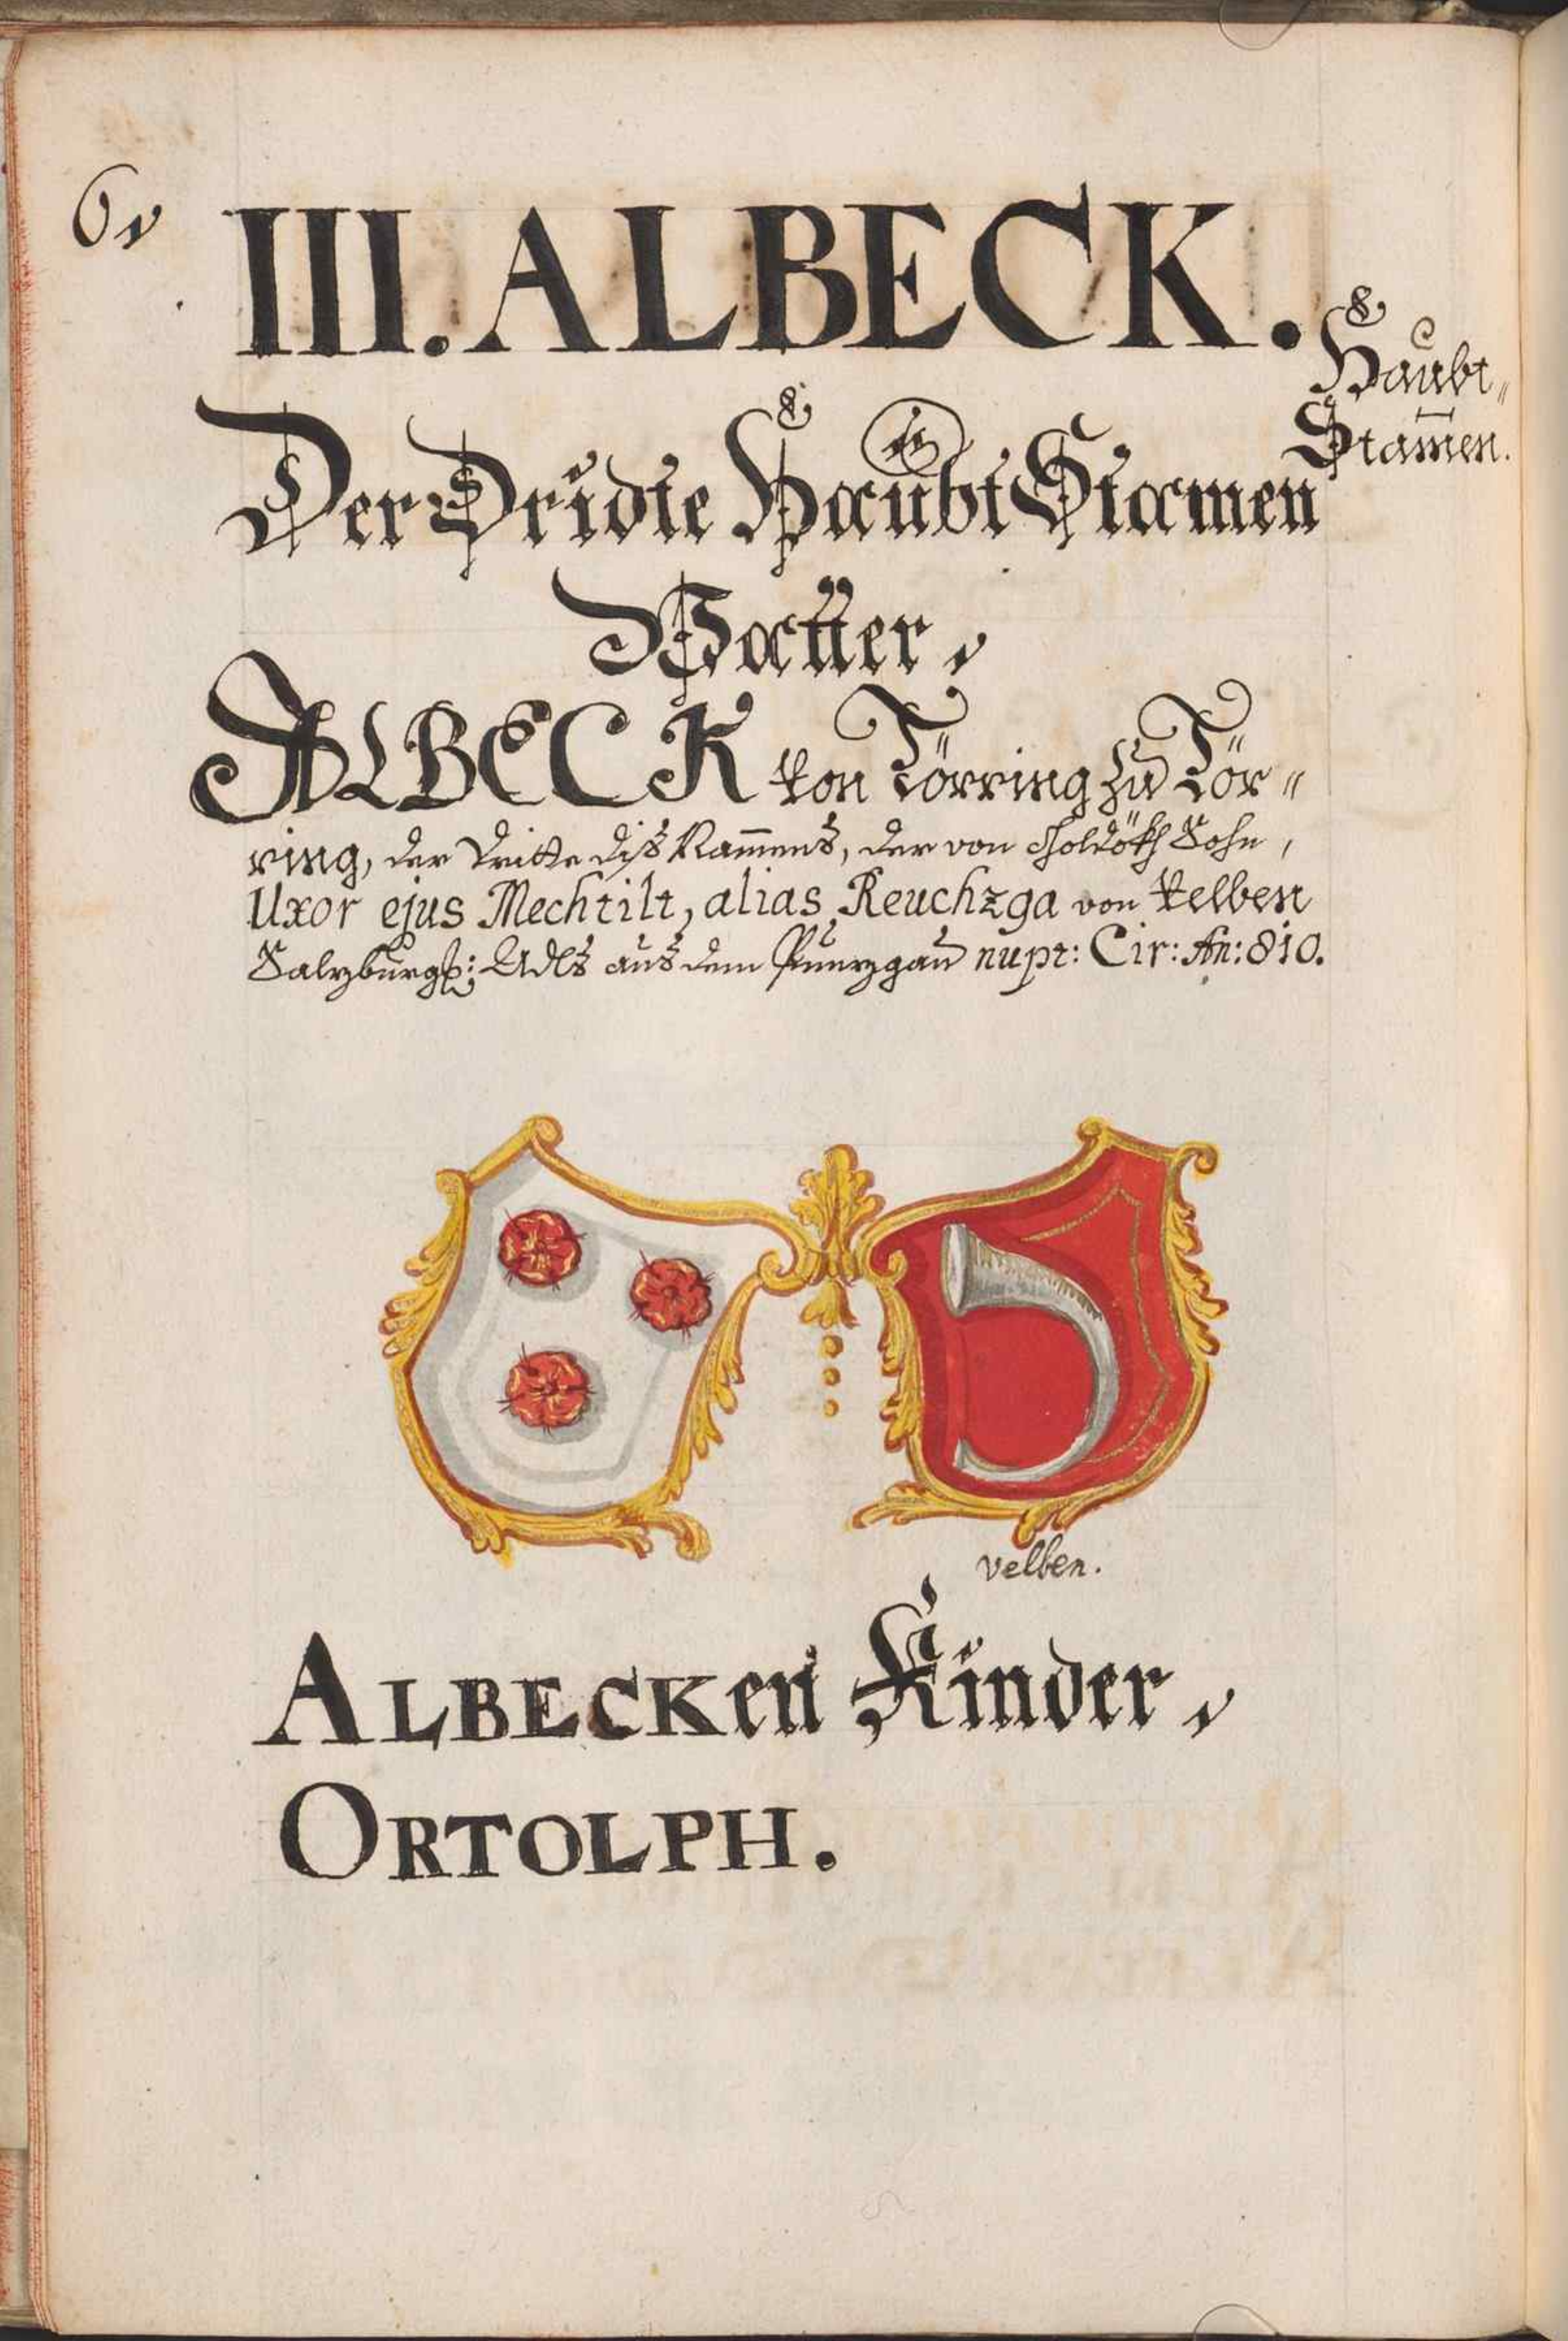 6,
III. ALBECK.
Haubt„
Stam̅en.
Der Dridte Haubt Stamen
Vatter,
ALBECK von Törring zu Tör„
ring, der Dritte diß Nam̅ens, der von Sohn,
Uxor ejus Mechtilt, alias Reuchzga von Velben
Salzburg: Adls aus dem Pünzgau nupt: Cir: An: 810.
velben.
ALBECKen Kinder,
ORTOLPH.